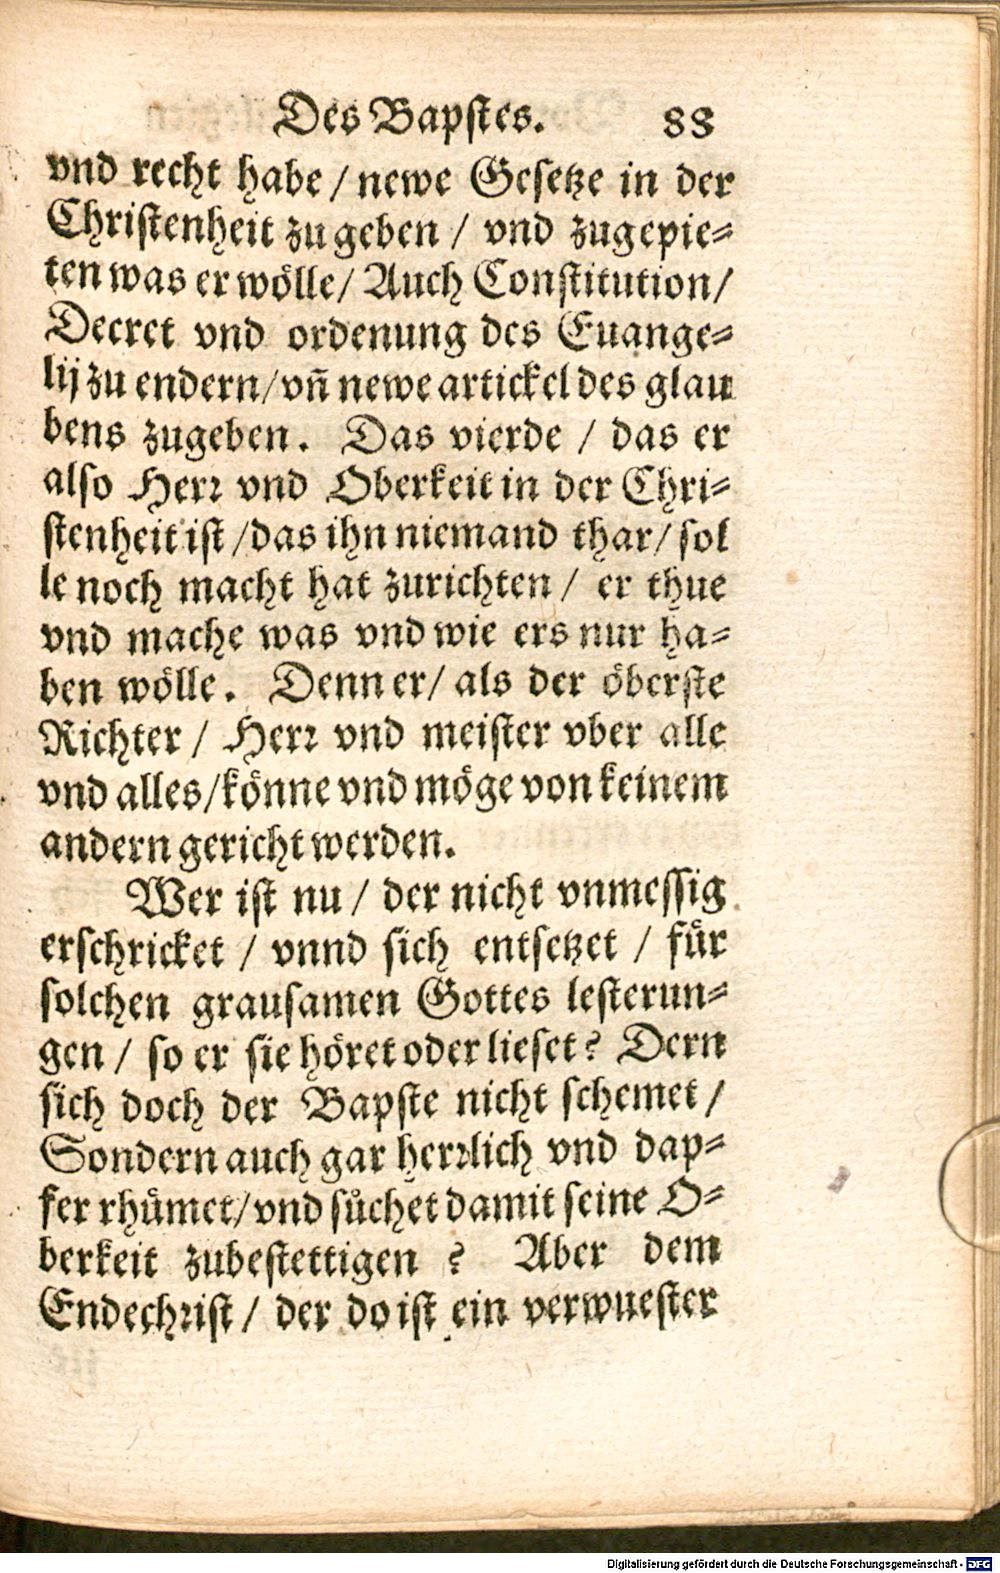 Des Bapstes. 88
vnd recht habe / newe Gesetze in der
Christenheit zu geben / vnd zugepie⸗
ten was er wölle / Auch Constitution /
Decret vnd ordenung des Euange⸗
lij zu endern / vn̄ newe artickel des glau
bens zugeben. Das vierde / das er
also Herr vnd Oberkeit in der Chri⸗
stenheit ist / das ihn niemand thar / sol
le noch macht hat zurichten / er thue
vnd mache was vnd wie ers nur ha⸗
ben wölle. Denn er / als der öberste
Richter / Herr vnd meister vber alle
vnd alles / könne vnd möge von keinem
andern gericht werden.
Wer ist nu / der nicht vnmessig
erschricket / vnnd sich entsetzet / für
solchen grausamen Gottes lesterun⸗
gen / so er sie höret oder lieset? Dern
sich doch der Bapste nicht schemet /
Sondern auch gar herrlich vnd dap⸗
fer rhümet / vnd süchet damit seine O⸗
berkeit zubestettigen ? Aber dem
Endechrist / der do ist ein verwuester
Digitalisierung gefördert durch die Deutsche Forschungsgemeinschaft - DFG